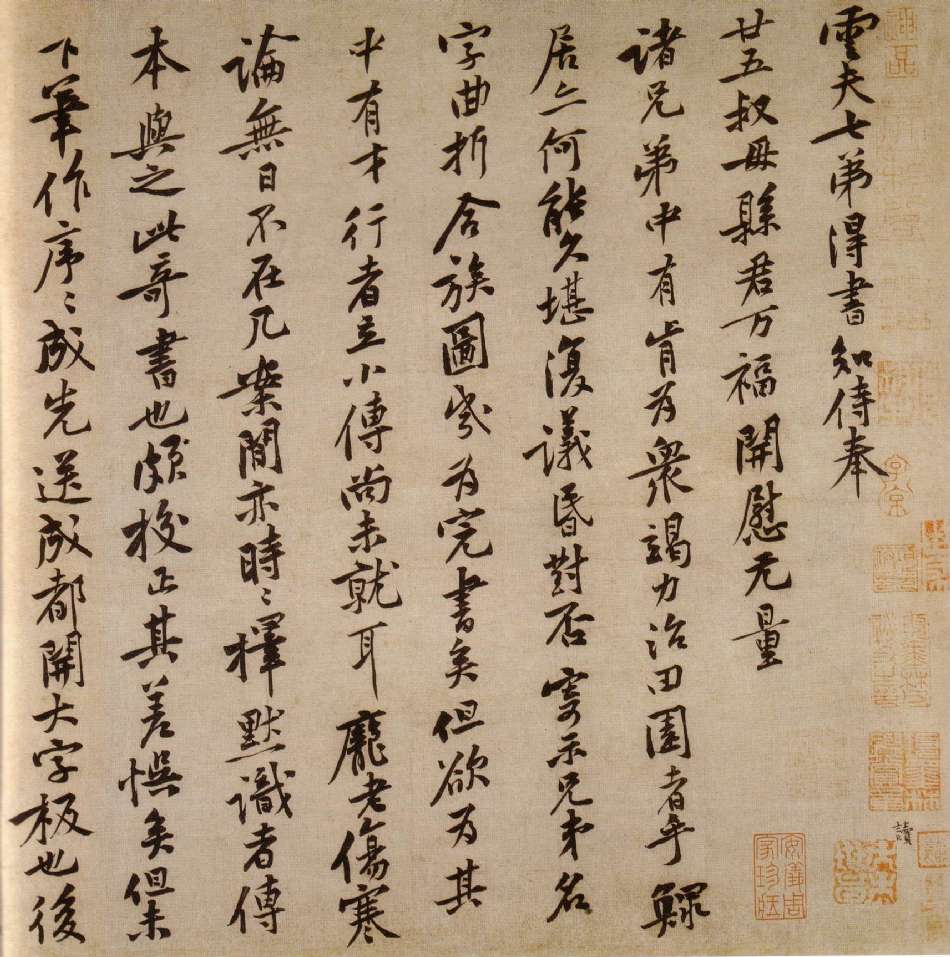 雲夫七弟得書知侍奉
廿五叔母縣君万福開慰无量
諸兄弟中有肯为衆竭力治田園者乎鰥
居亦何能久堪復議昏對否寄示兄弟名
字曲折合族圖幾为完書矣但欲为其
中有才行者立小傳尚未就耳龐老傷寒
論無日不在几案間亦時〻擇默識者傳
本與之此奇書也頗校正其差悮矣但未
下筆作序〻成先送成都開大字板也後
讀
安儀周家珍藏